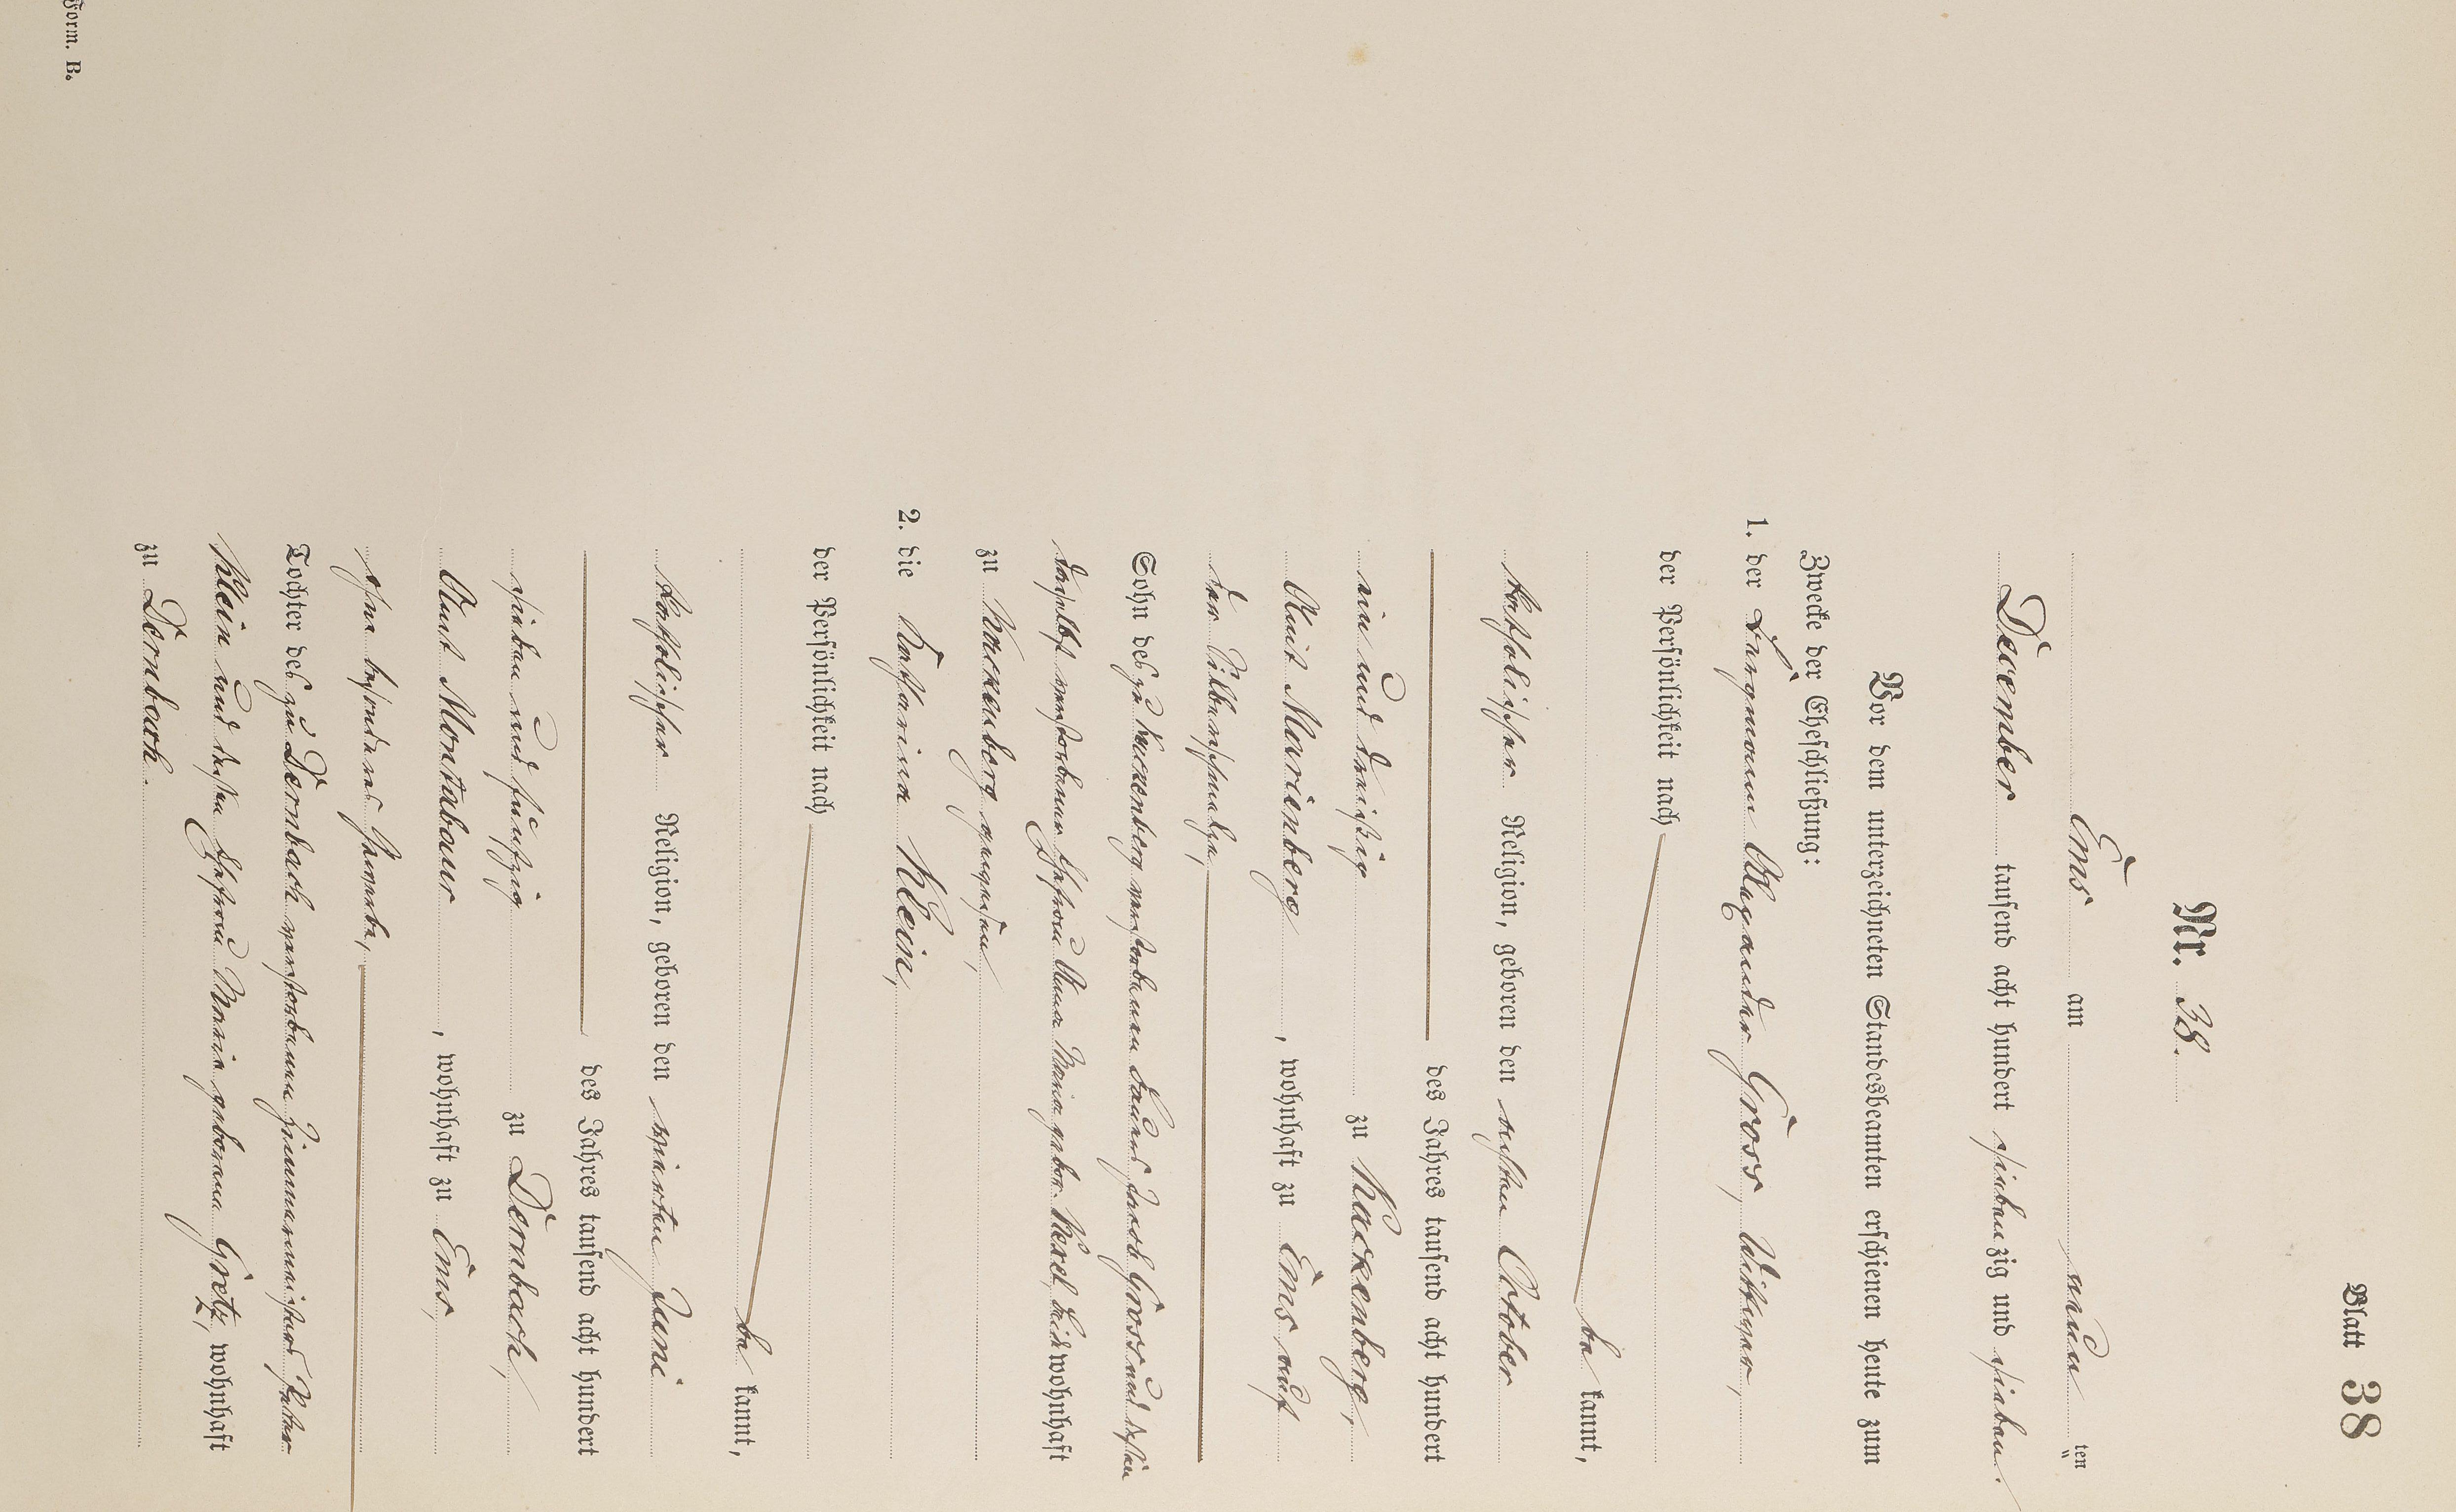 Blatt 38
Nr. 38.
Ems am neun ten
December tausend acht hundert siebenzig und sieben.
Vor dem unterzeichneten Standesbeamten erschienen heute zum
Zwecke der Eheschließung:
1. der Bergmann Alexander Gross, Wittwer,
der Persönlichkeit nach
be kannt,
katholischer Religion, geboren den ersten October
des Jahres tausend acht hundert
ein und dreißig zu Kackenberg,
Amt Marienberg, wohnhaft zu Ems auf
der Silberschmelze,
Sohn des zu Kackenberg verstorbenen Jacob Gross und dessen
daselbst verstorbenen Ehefrau Anna Maria gebor. beide wohnhaft
zu Kackenberg gewesen,
2. die Katharina Klein,
der Persönlichkeit nach
be kannt,
katholischer Religion, geboren den vierten Juni
des Jahres tausend acht hundert
sieben und fünfzig zu Dernbach,
Amt Montabaur, wohnhaft zu Ems,
ohne besonderes Gewerbe,
Tochter des zu Dernbach verstorbenen Zimmermeisters Peter
Klein und dessen Ehefrau Maria geborene Gretz, wohnhaft
zu Dernbach.
Form. B.